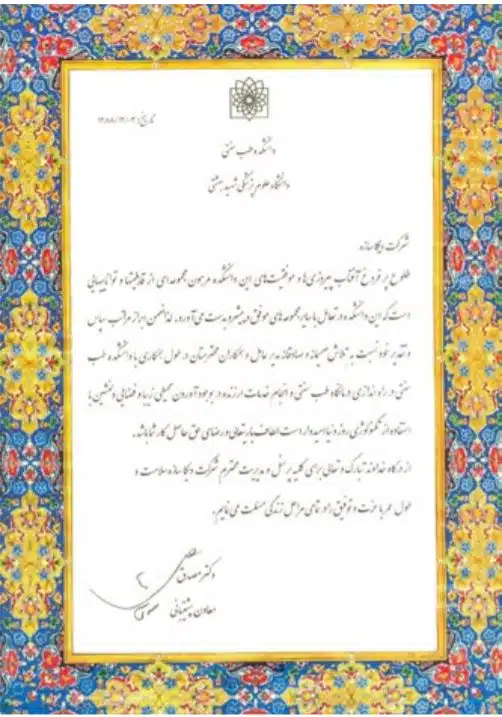 تاریخ: ۱۳۸۸/۱۲/۰۳
دانشکده طب سنتی
دانشگاه علوم پزشکی شهید بهشتی
شرکت دیکاسازه
طلوع پر فروغ آفتاب پیروزی‌ها و موفقیت‌های این دانشکده مرهون مجموعه‌ای از قابلیتها و توانایی‌هایی
است که این دانشکده در تعامل با سایر مجموعه‌های موفق و پیشرو بدست می‌آورد. لذا ضمن ابراز مراتب سپاس
و تقدیر خود نسبت به تلاش صمیمانه و صادقانه مدیر عامل و همکاران محترمتان در طول همکاری با دانشکده طب
سنتی در راه اندازی درمانگاه طب سنتی و انجام خدمات ارزنده در بوجود آوردن محیطی زیبا و فضایی دلنشین با
استفاده از تکنولوژی روز دنیا امیدوار است الطاف باریتعالی و رضای حق حاصل کار شما باشد.
از درگاه خداوند تبارک و تعالی برای کلیه پرسنل و مدیریت محترم شرکت دیکاسازه سلامت و
طول عمر با عزت و توفیق را در تمامی مراحل زندگی مسئلت می نمایم.
دکتر مصدق
معاون پشتیبانی